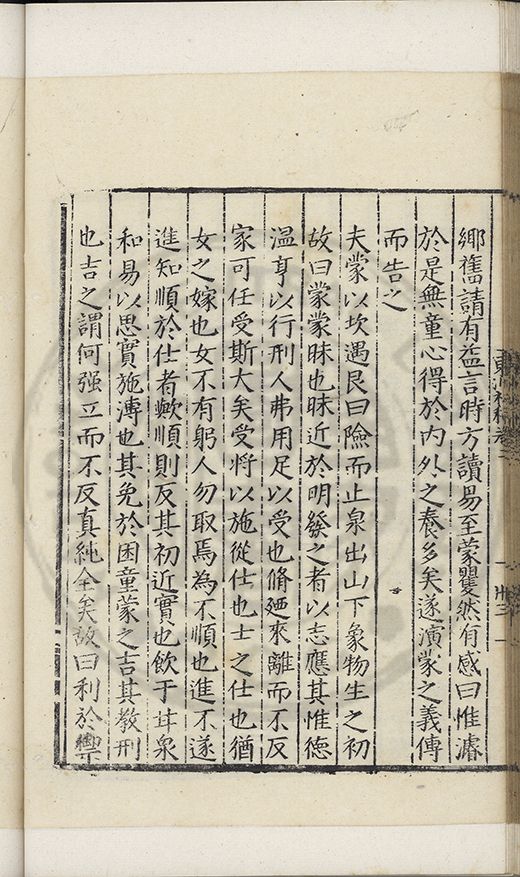 鄉舊請有益言時方讀易至蒙瞿然有感曰惟濬
於是無童心得於内外之養多矣遂演蒙之義傳
而告之
夫蒙以坎遇艮曰險而止泉出山下象物生之初
故曰蒙蒙昧也昧近於明發之者以志應其惟德
溫亨以行刑人弗用足以受也脩廼來離而不反
家可任受斯大矣受將以施從仕也士之仕也猶
女之嫁也女不有躬人勿取焉為不順也進不遂
進知順於仕者歟順則反其初近實也飲于井泉
和易以思實施溥也其免於困童蒙之吉其教刑
也吉之謂何强立而不反真純全矣故曰利於禦